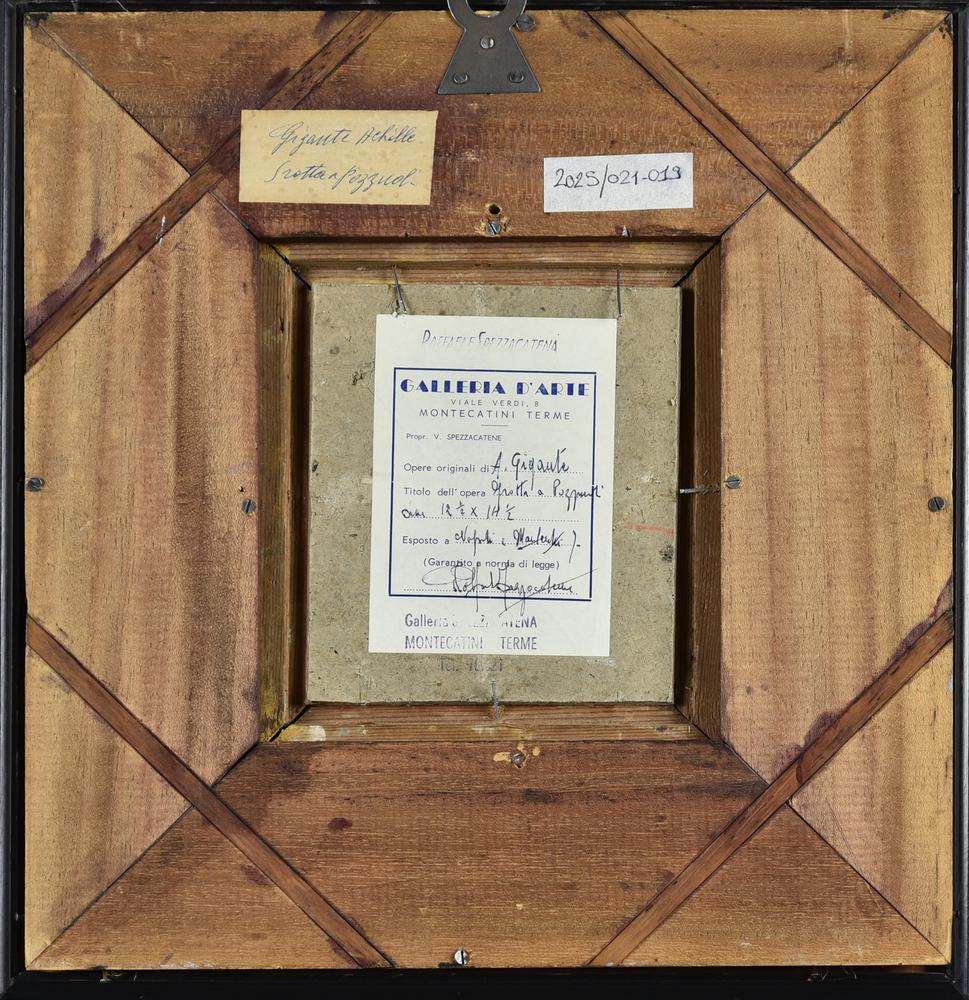 Gigante Achille
Grotta a Pozzuoli
2025/021-019
RAFFAELE SPEZZACATENA
GALLERIA D'ARTE
VIALE VERDI, 8
MONTECATINI TERME
Propr. V. SPEZZACATENE
Opere originali di A. Gigante
Titolo dell'opera Grotta a Pozzuoli
12 ½ x 14 ½
Esposto a Napoli e
(Garantito a norma di legge)
Galleria
MONTECATINI TERME
Tel.